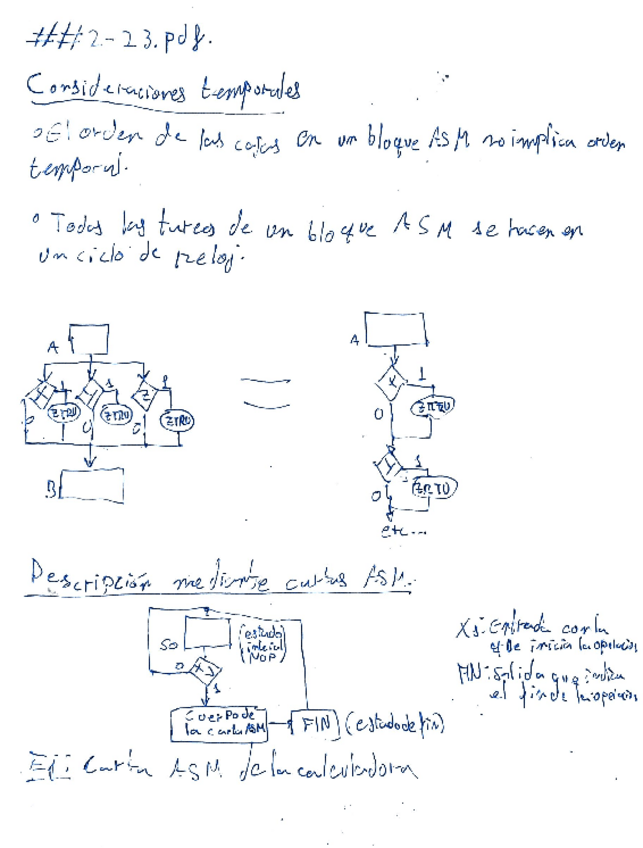 ###2-23.pdf.
Consideraciones temporales
o El orden de las cajas en un bloque ASM no implica orden
temporal.
o Todas las tareas de un bloque ASM se hacen en
un ciclo de reloj.
A
A
X
1
Y
1
Z
1
ZERO
ZERO
ZERO
0
0
0
B
=
X
1
0
ZERO
Y
1
0
ZERO
etc...
Descripción mediante cartas ASM.
S0
(estado
inicial
NOP)
Xs
0
1
Cuerpo de
la carta ASM
FIN
(estado de fin)
Xs: Entrada con la
q. se inicia la operación
FIN: Salida que indica
el fin de la operación
Ej: Carta ASM de la calculadora